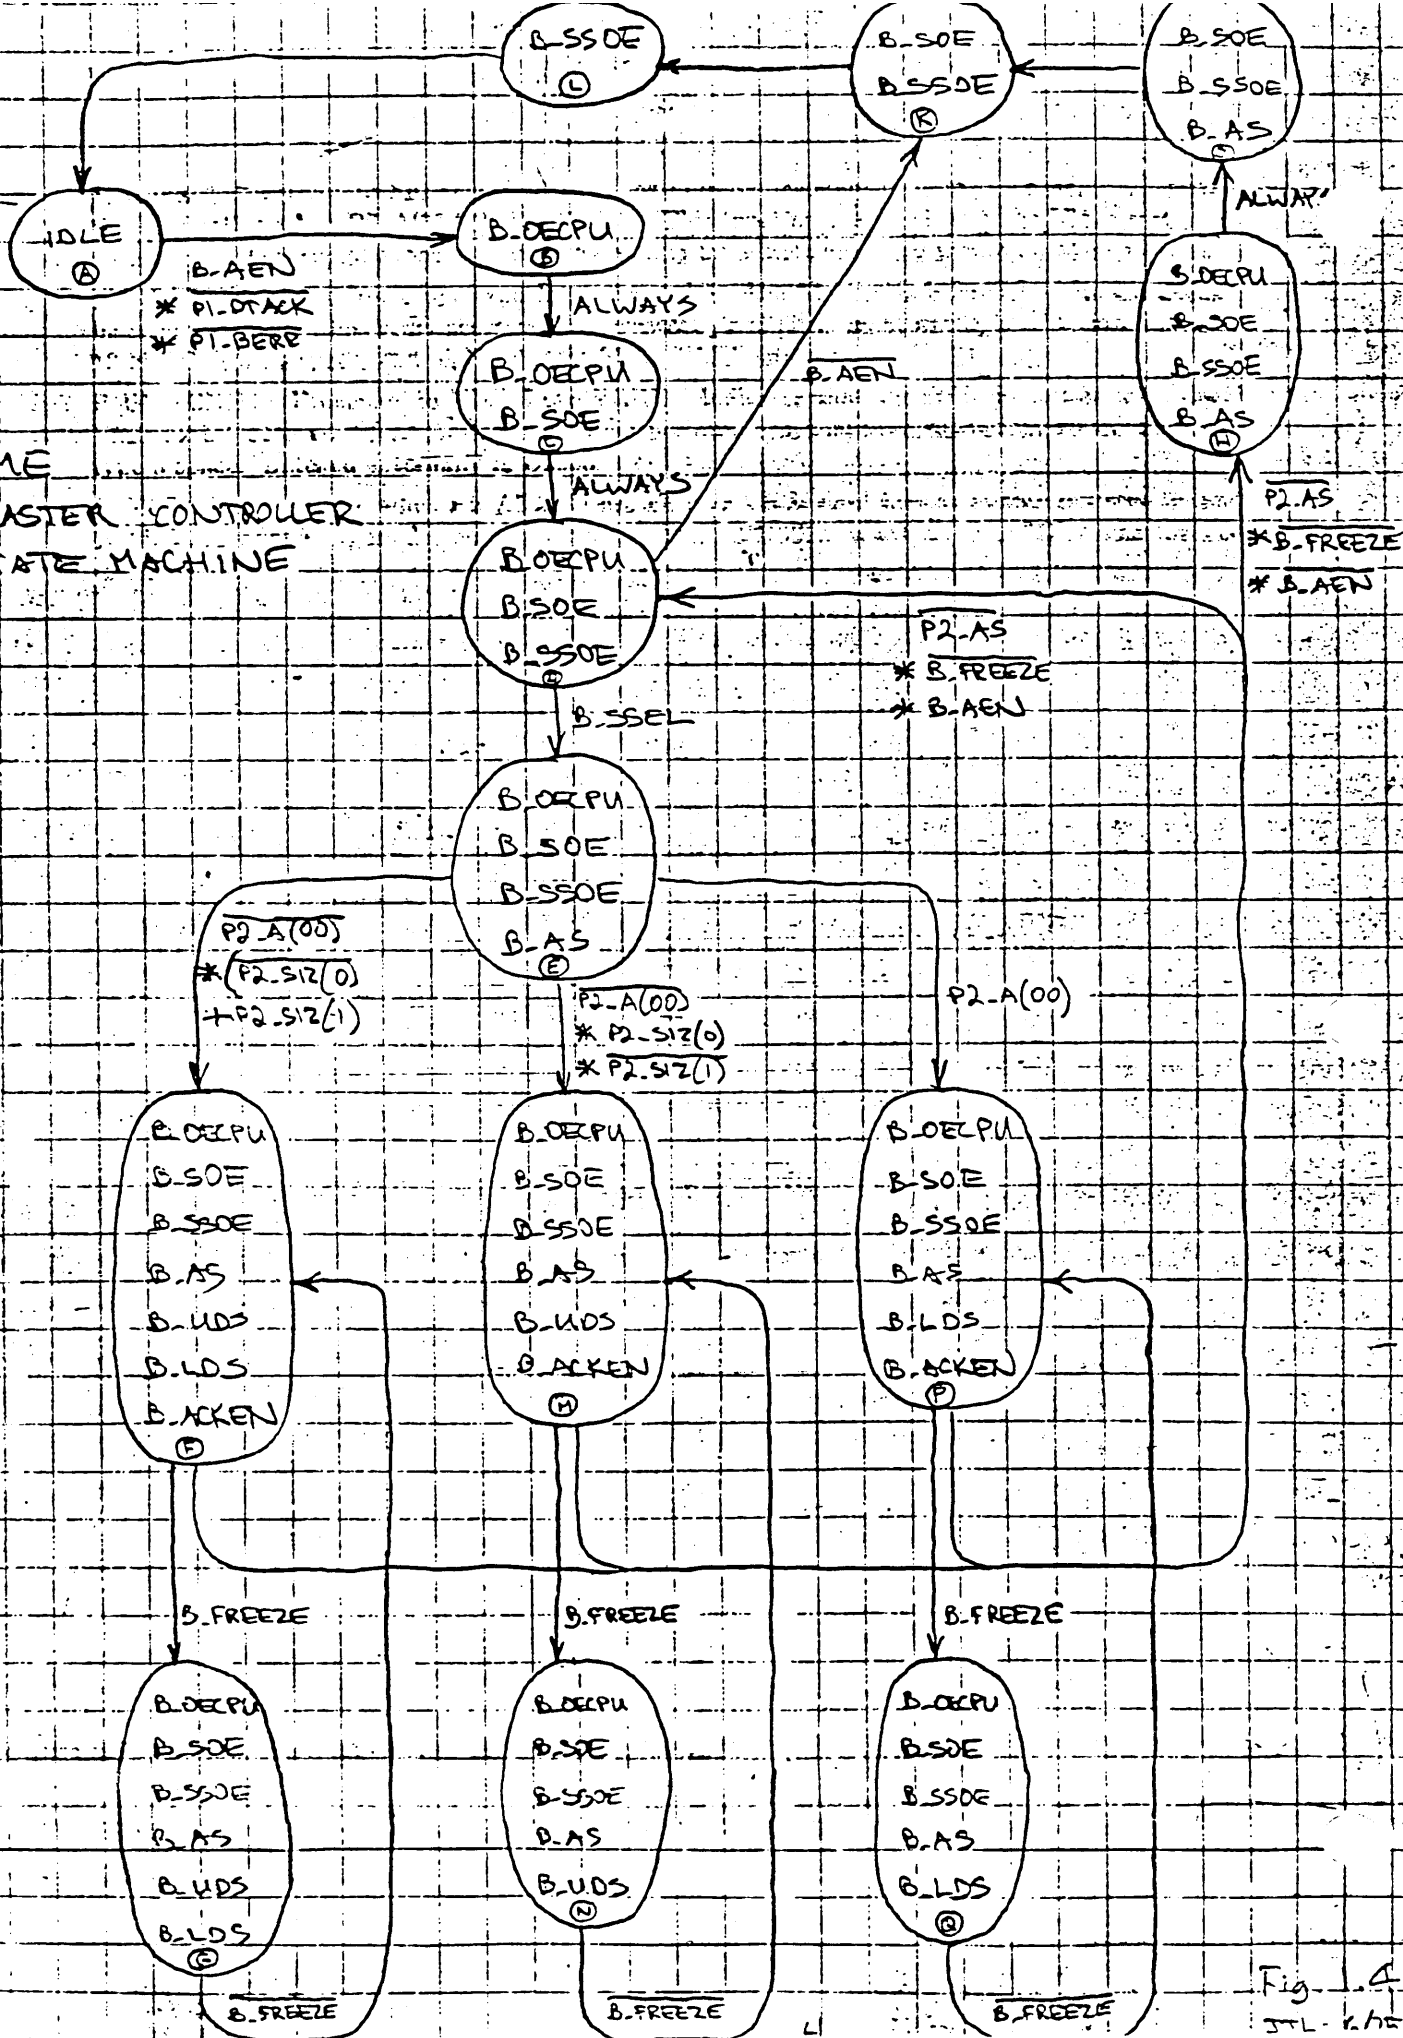 B_SSOE
L
B_SOE
B_SSOE
K
B_SOE
B_SSOE
B_AS
IDLE
A
B_AEN
* P1_DTACK
* P1_BERR
B_OECPU
B
ALWAYS
B_OECPU
B_SOE
C
ALWAYS
B_AEN
B_OECPU
B_SOE
B_SSOE
B_AS
H
P2_AS
* B_FREEZE
* B_AEN
CONTROLLER
MACHINE
B_OECPU
B_SOE
B_SSOE
P2_AS
* B_FREEZE
* B_AEN
B_SSEL
B_OECPU
B_SOE
B_SSOE
B_AS
E
P2_A(00)
* (P2_SIZ(0)
+ P2_SIZ(1)
P2_A(00)
* P2_SIZ(0)
* P2_SIZ(1)
P2_A(00)
B_OECPU
B_SOE
B_SSOE
B_AS
B_UDS
B_LDS
B_ACKEN
F
B_OECPU
B_SOE
B_SSOE
B_AS
B_UDS
B_ACKEN
M
B_OECPU
B_SOE
B_SSOE
B_AS
B_LDS
B_ACKEN
P
B_FREEZE
B_FREEZE
B_FREEZE
B_OECPU
B_SOE
B_SSOE
B_AS
B_UDS
B_LDS
B_FREEZE
B_OECPU
B_SOE
B_SSOE
B_AS
B_UDS
N
B_FREEZE
B_OECPU
B_SOE
B_SSOE
B_AS
B_LDS
Q
B_FREEZE
Fig. 4
JTL